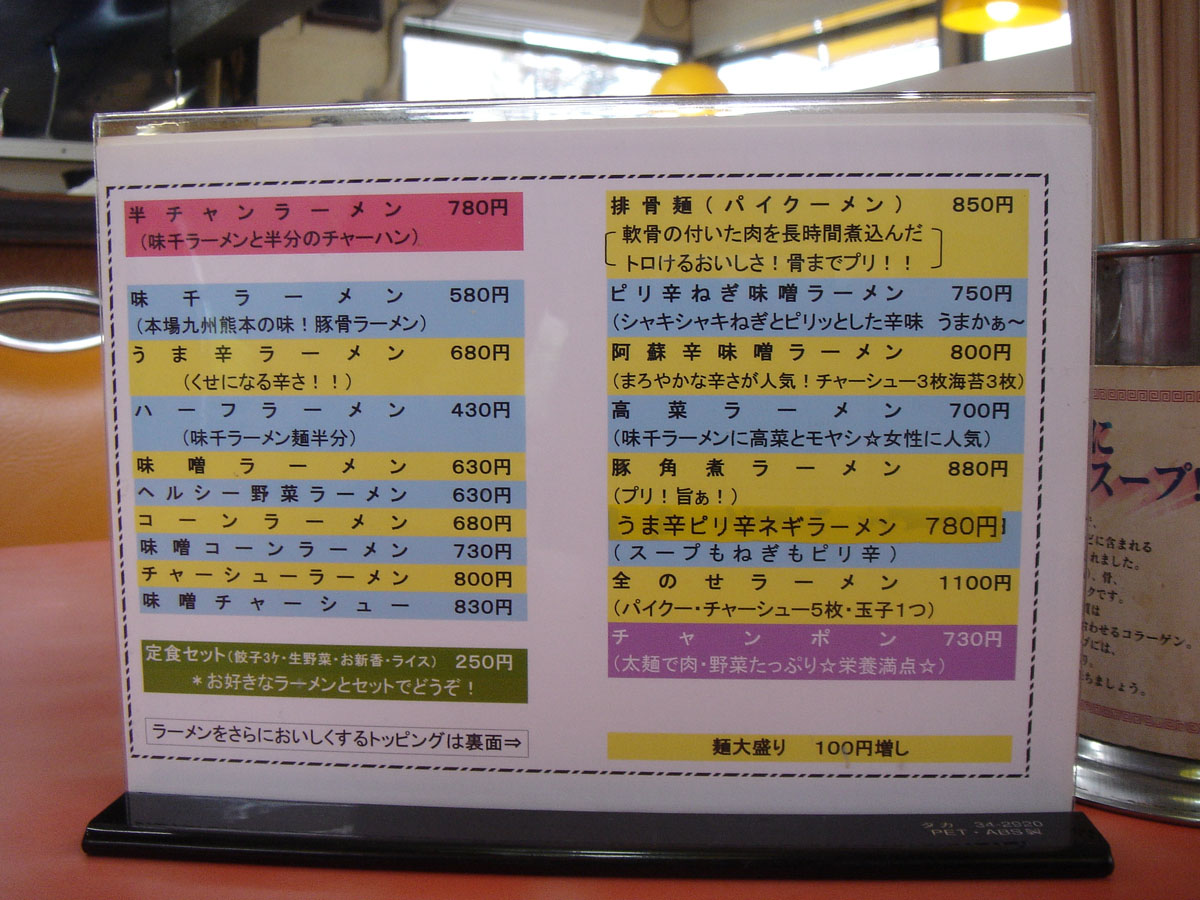 半チャンラーメン 780円
(味千ラーメンと半分のチャーハン)
味千ラーメン 580円
(本場九州熊本の味!豚骨ラーメン)
うま辛ラーメン 680円
(くせになる辛さ!!)
ハーフラーメン 430円
(味千ラーメン麺半分)
味噌ラーメン 630円
ヘルシー野菜ラーメン 630円
コーンラーメン 680円
味噌コーンラーメン 730円
チャーシューラーメン 800円
味噌チャーシュー 830円
定食セット(餃子3ケ・生野菜・お新香・ライス) 250円
*お好きなラーメンとセットでどうぞ!
ラーメンをさらにおいしくするトッピングは裏面⇒
排骨麺(パイクーメン) 850円
軟骨の付いた肉を長時間煮込んだ
トロけるおいしさ!骨までプリ!!
ピリ辛ねぎ味噌ラーメン 750円
(シャキシャキねぎとピリッとした辛味 うまかぁ~
阿蘇辛味噌ラーメン 800円
(まろやかな辛さが人気!チャーシュー3枚海苔3枚)
高菜ラーメン 700円
(味千ラーメンに高菜とモヤシ☆女性に人気)
豚角煮ラーメン 880円
(プリ!旨ぁ!)
うま辛ピリ辛ネギラーメン 780円
(スープもねぎもピリ辛)
全のせラーメン 1100円
(パイクー・チャーシュー5枚・玉子1つ)
チャンポン 730円
(太麺で肉・野菜たっぷり☆栄養満点☆)
麺大盛り 100円増し
タカ 34-2920
PET・ABS製
に
スープ
に含まれる
れました。
、骨、
クです。
は
わせるコラーゲン。
には、
ちましょう。